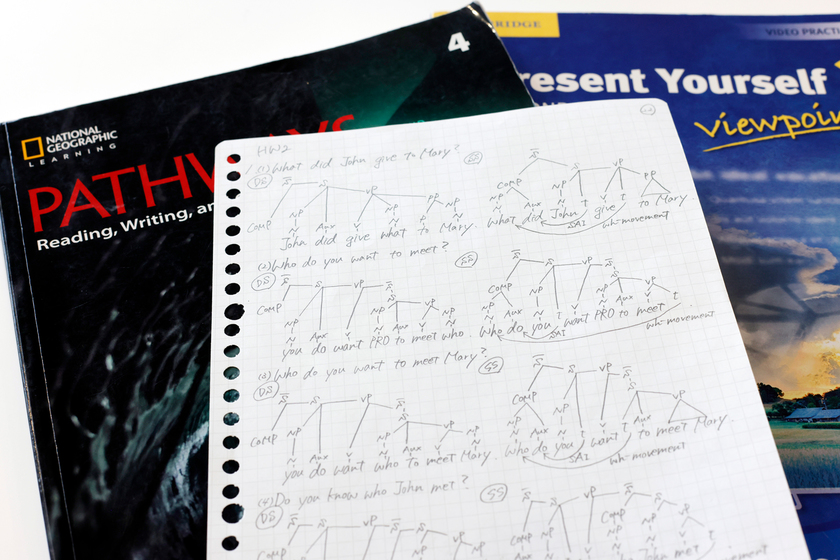 4
BRIDGE
VIDEO PRACTI
NATIONAL
GEOGRAPHIC
LEARNING
PATHWAYS
Reading, Writing, an
resent Yourself
Viewpoin
HW2
(1) What did John give to Mary?
DS
S̄ S VP PP
COMP NP Aux V NP P NP
N N N
John did give what to Mary.
SS
S̄ S VP PP
COMP NP t V t
NP Aux N
What did John give to Mary
SAI wh-movement
(2) Who do you want to meet?
DS
S̄ S VP S̄
S VP
COMP NP Aux V NP Aux V NP
N N N
you do want PRO to meet who.
SS
S̄ S VP S̄
S VP
COMP NP t V NP Aux V t
NP Aux N N
Who do you want PRO to meet
SAI wh-movement
(3) Who do you want to meet Mary?
DS
S̄ S VP S̄
S VP
COMP NP Aux V NP Aux V NP
N N N
you do want who to meet Mary.
SS
S̄ S VP S̄
S VP
COMP NP t V t Aux
NP Aux N
Who do you want to meet Mary.
SAI wh-movement
(4) Do you know who John met?
DS
S̄ S VP S̄ S VP
COMP NP
SS
S̄ S VP S̄ S VP
COMP NP COMP